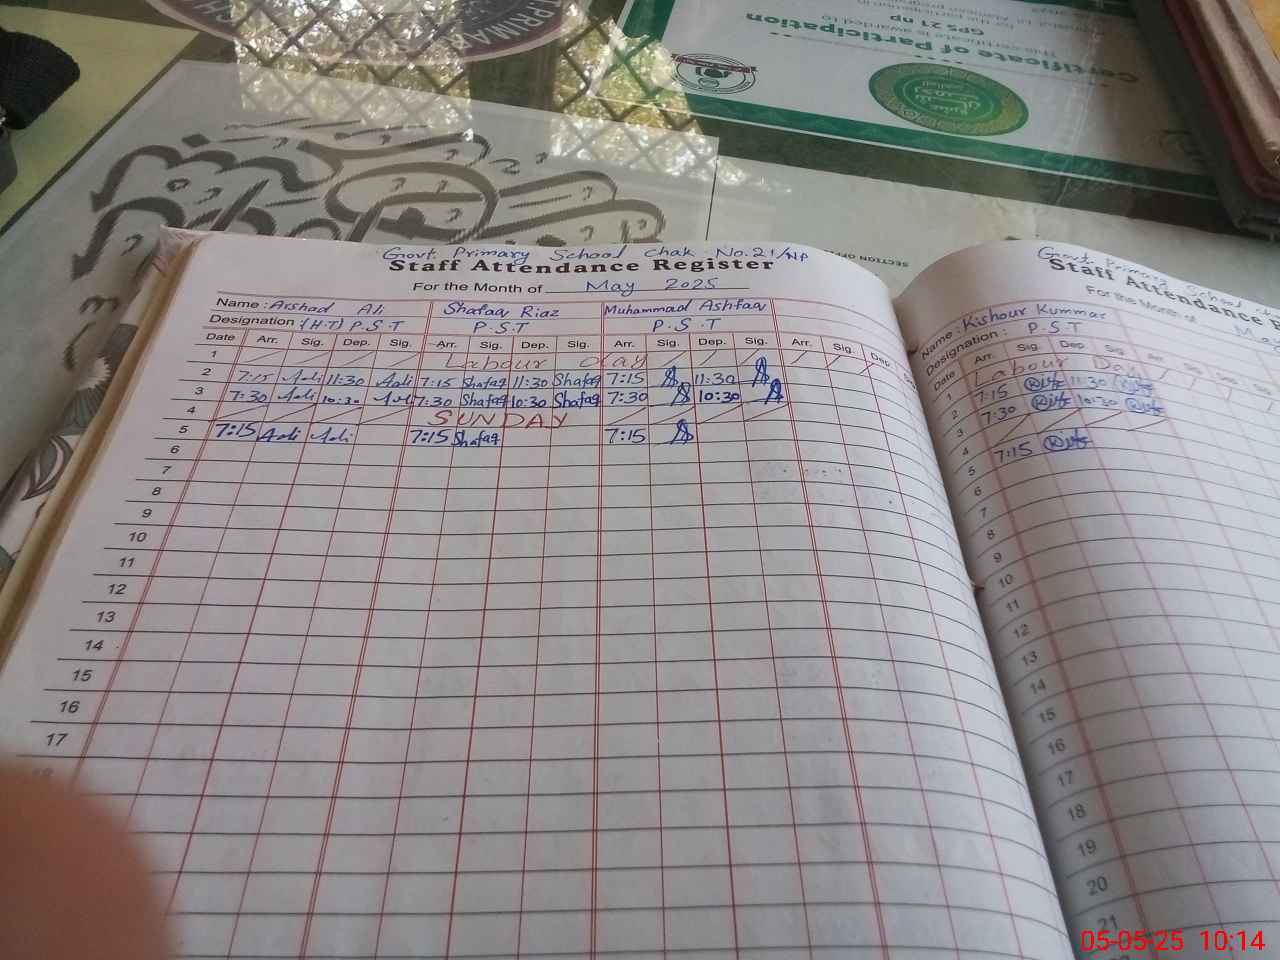 PRIMAR
Certificate of Participation
This certificate is awarded to
GPS 21 np
SECTION OFF
Govt. Primary School Chak No. 21/NP
Staff Attendance Register
For the Month of May 2025
Name : Arshad Ali Shafaq Riaz Muhammad Ashfaq
Designation : (H.T) P.S.T P.S.T P.S.T
Date Arr. Sig. Dep. Sig. Arr. Sig. Dep. Sig. Arr. Sig. Dep. Sig. Arr. Sig. Dep.
1 Labour day
2 7:15 Adi 11:30 Adi 7:15 Shafaq 11:30 Shafaq 7:15 11:30
3 7:30 Adi 10:30 Adi 7:30 Shafaq 10:30 Shafaq 7:30 10:30
4 SUNDAY
5 7:15 Adi Adi 7:15 Shafaq 7:15
6
7
8
9
10
11
12
13
14
15
16
17
18
Govt. Primary School
Staff Attendance
For the Month of
Name : Kishour Kummar
Designation : P.S.T
Date Arr. Sig. Dep. Sig. Arr. Sig.
1 Labour Day
2 7:15 11:30
3 7:30 10:30
4
5 7:15
6
7
8
9
10
11
12
13
14
15
16
17
18
19
20
21
05-05-25 10:14